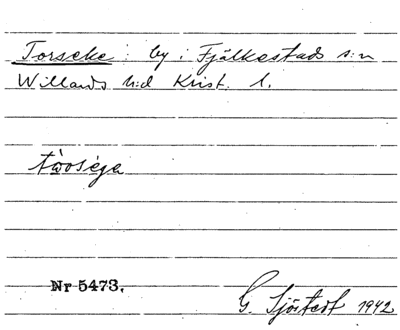 Torseke: by i Fjälkestads s:n
Willands h:d Krist. l.
tòosèga
Nr 5473.
G. Sjöstedt 1942